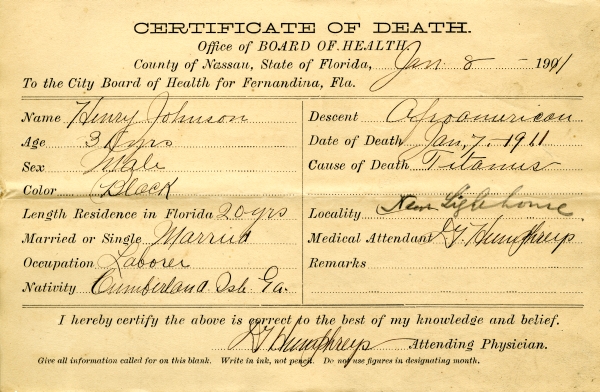 CERTIFICATE OF DEATH.
Office of BOARD OF HEALTH
County of Nassau, State of Florida, Jan 8 - 1911
To the City Board of Health for Fernandina, Fla.
Name Henry Johnson
Age 3 yrs
Sex Male
Color Black
Length Residence in Florida 20 yrs
Married or Single Married
Occupation Laborer
Nativity Cumberland Isl. Ga.
Descent Afroamerican
Date of Death Jan, 7 - 1911
Cause of Death Titanus
Locality Near Lighthouse
Medical Attendant Humphreys
Remarks
I hereby certify the above is correct to the best of my knowledge and belief.
Humphreys Attending Physician.
Give all information called for on this blank. Write in ink, not pencil. Do not use figures in designating month.